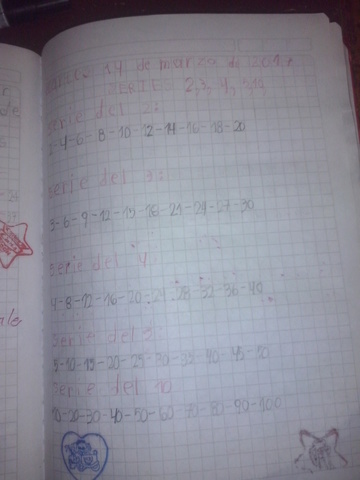 14 de marzo de 201
SERIES 2,3,4,5,10
serie del 2:
2-4-6-8-10-12-14-16-18-20
serie del 3:
3-6-9-12-15-18-21-24-27-30
serie del 4:
4-8-12-16-20-24-28-32-36-40
serie del 5:
5-10-15-20-25-30-35-40-45-50
serie del 10
10-20-30-40-50-60-70-80-90-100